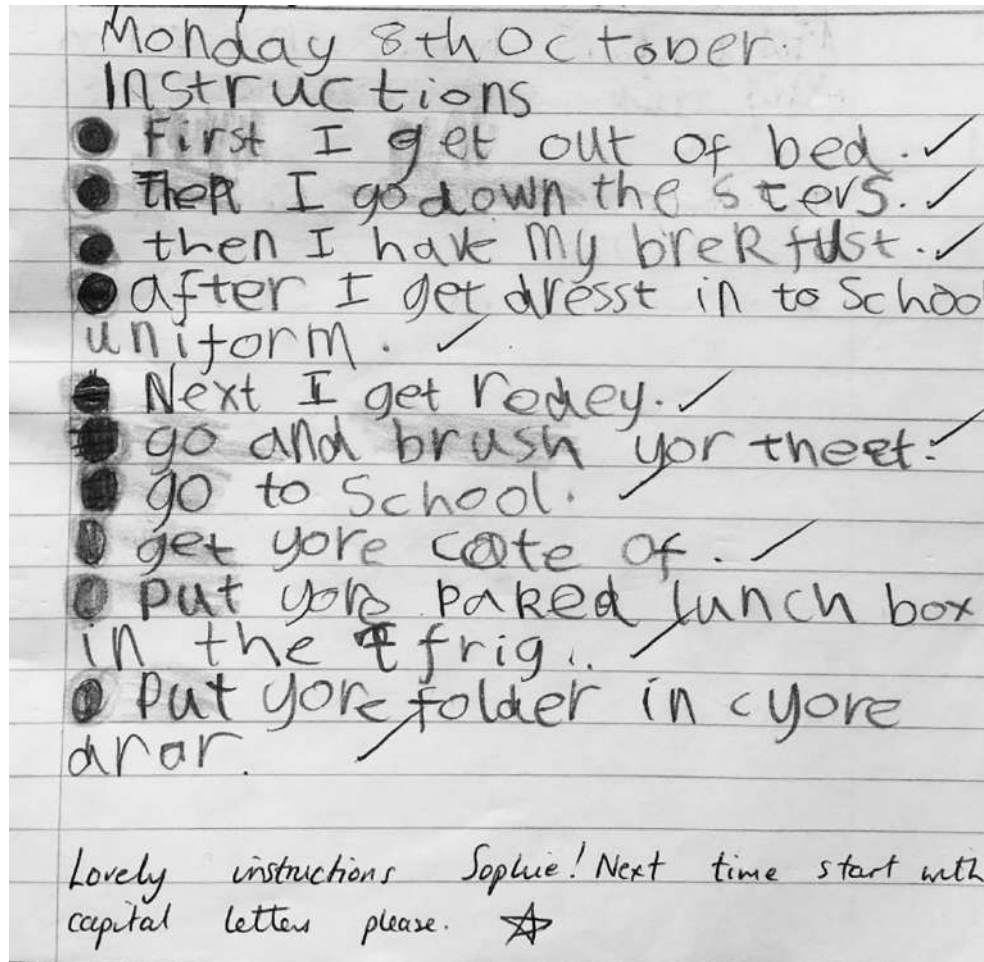 Monday 8th October.
Instructions
● First I get out of bed. ✓
● Then I go down the sters. ✓
● then I have my brekfust. ✓
● after I get dresst in to School
uniform. ✓
● Next I get redey. ✓
● go and brush yor theet. ✓
● go to School. ✓
● get yore cate of. ✓
● Put yore paked lunch box
in the frig.. ✓
● Put yore folder in yore
drar. ✓
Lovely instructions Sophie! Next time start with
capital letters please. ☆